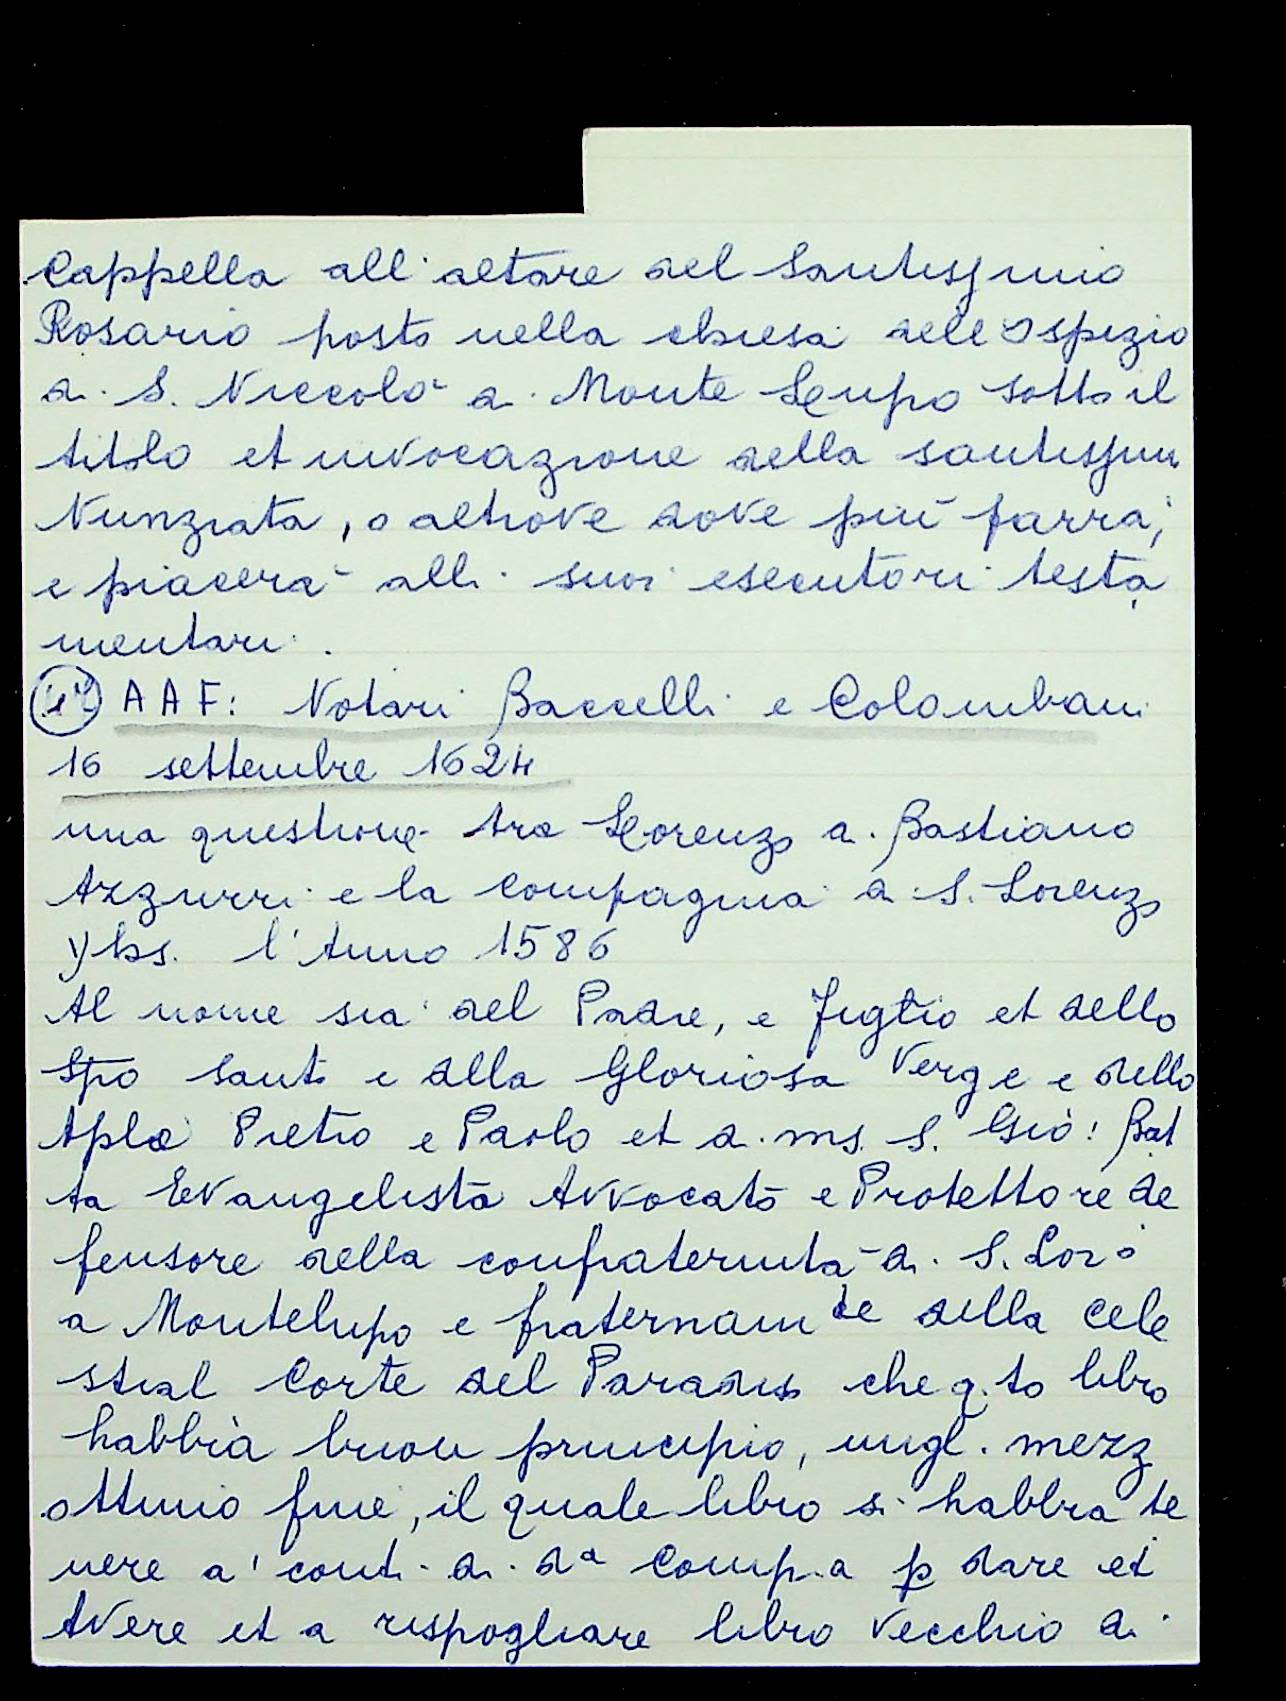 Cappella all'altare del Santissimo
Rosario posto nella chiesa dell'Ospizio
di S. Niccolò a Monte Lupo sotto il
titolo et invocazione della santissim
Nunziata, o altrove dove più parrà,
e piacerà alli suoi esecutori testa
mentari.
AAF: Notari Baccelli e Colombani
16 settembre 1624
una questione tra Lorenzo di Bastiano
Azzurri e la compagnia di S. Lorenzo
yhs. l'Anno 1586
Al nome sia del Padre, e Figlio et dello
Spo santo e alla Gloriosa Verge e dello
Aplo Pietro e Paolo et di ms. S. Gio: Bat
ta Evangelista Avvocato e Protettore de
fensore della confraternita di S. Lor°
a Montelupo e fraternam te della cele
stial Corte del Paradiso che q.to libro
habbia buon principio, migl. mezz
ottimo fine, il quale libro si habbia te
nere a' conti di da Comp.a p dare et
Avere et a rispogliare libro vecchio di